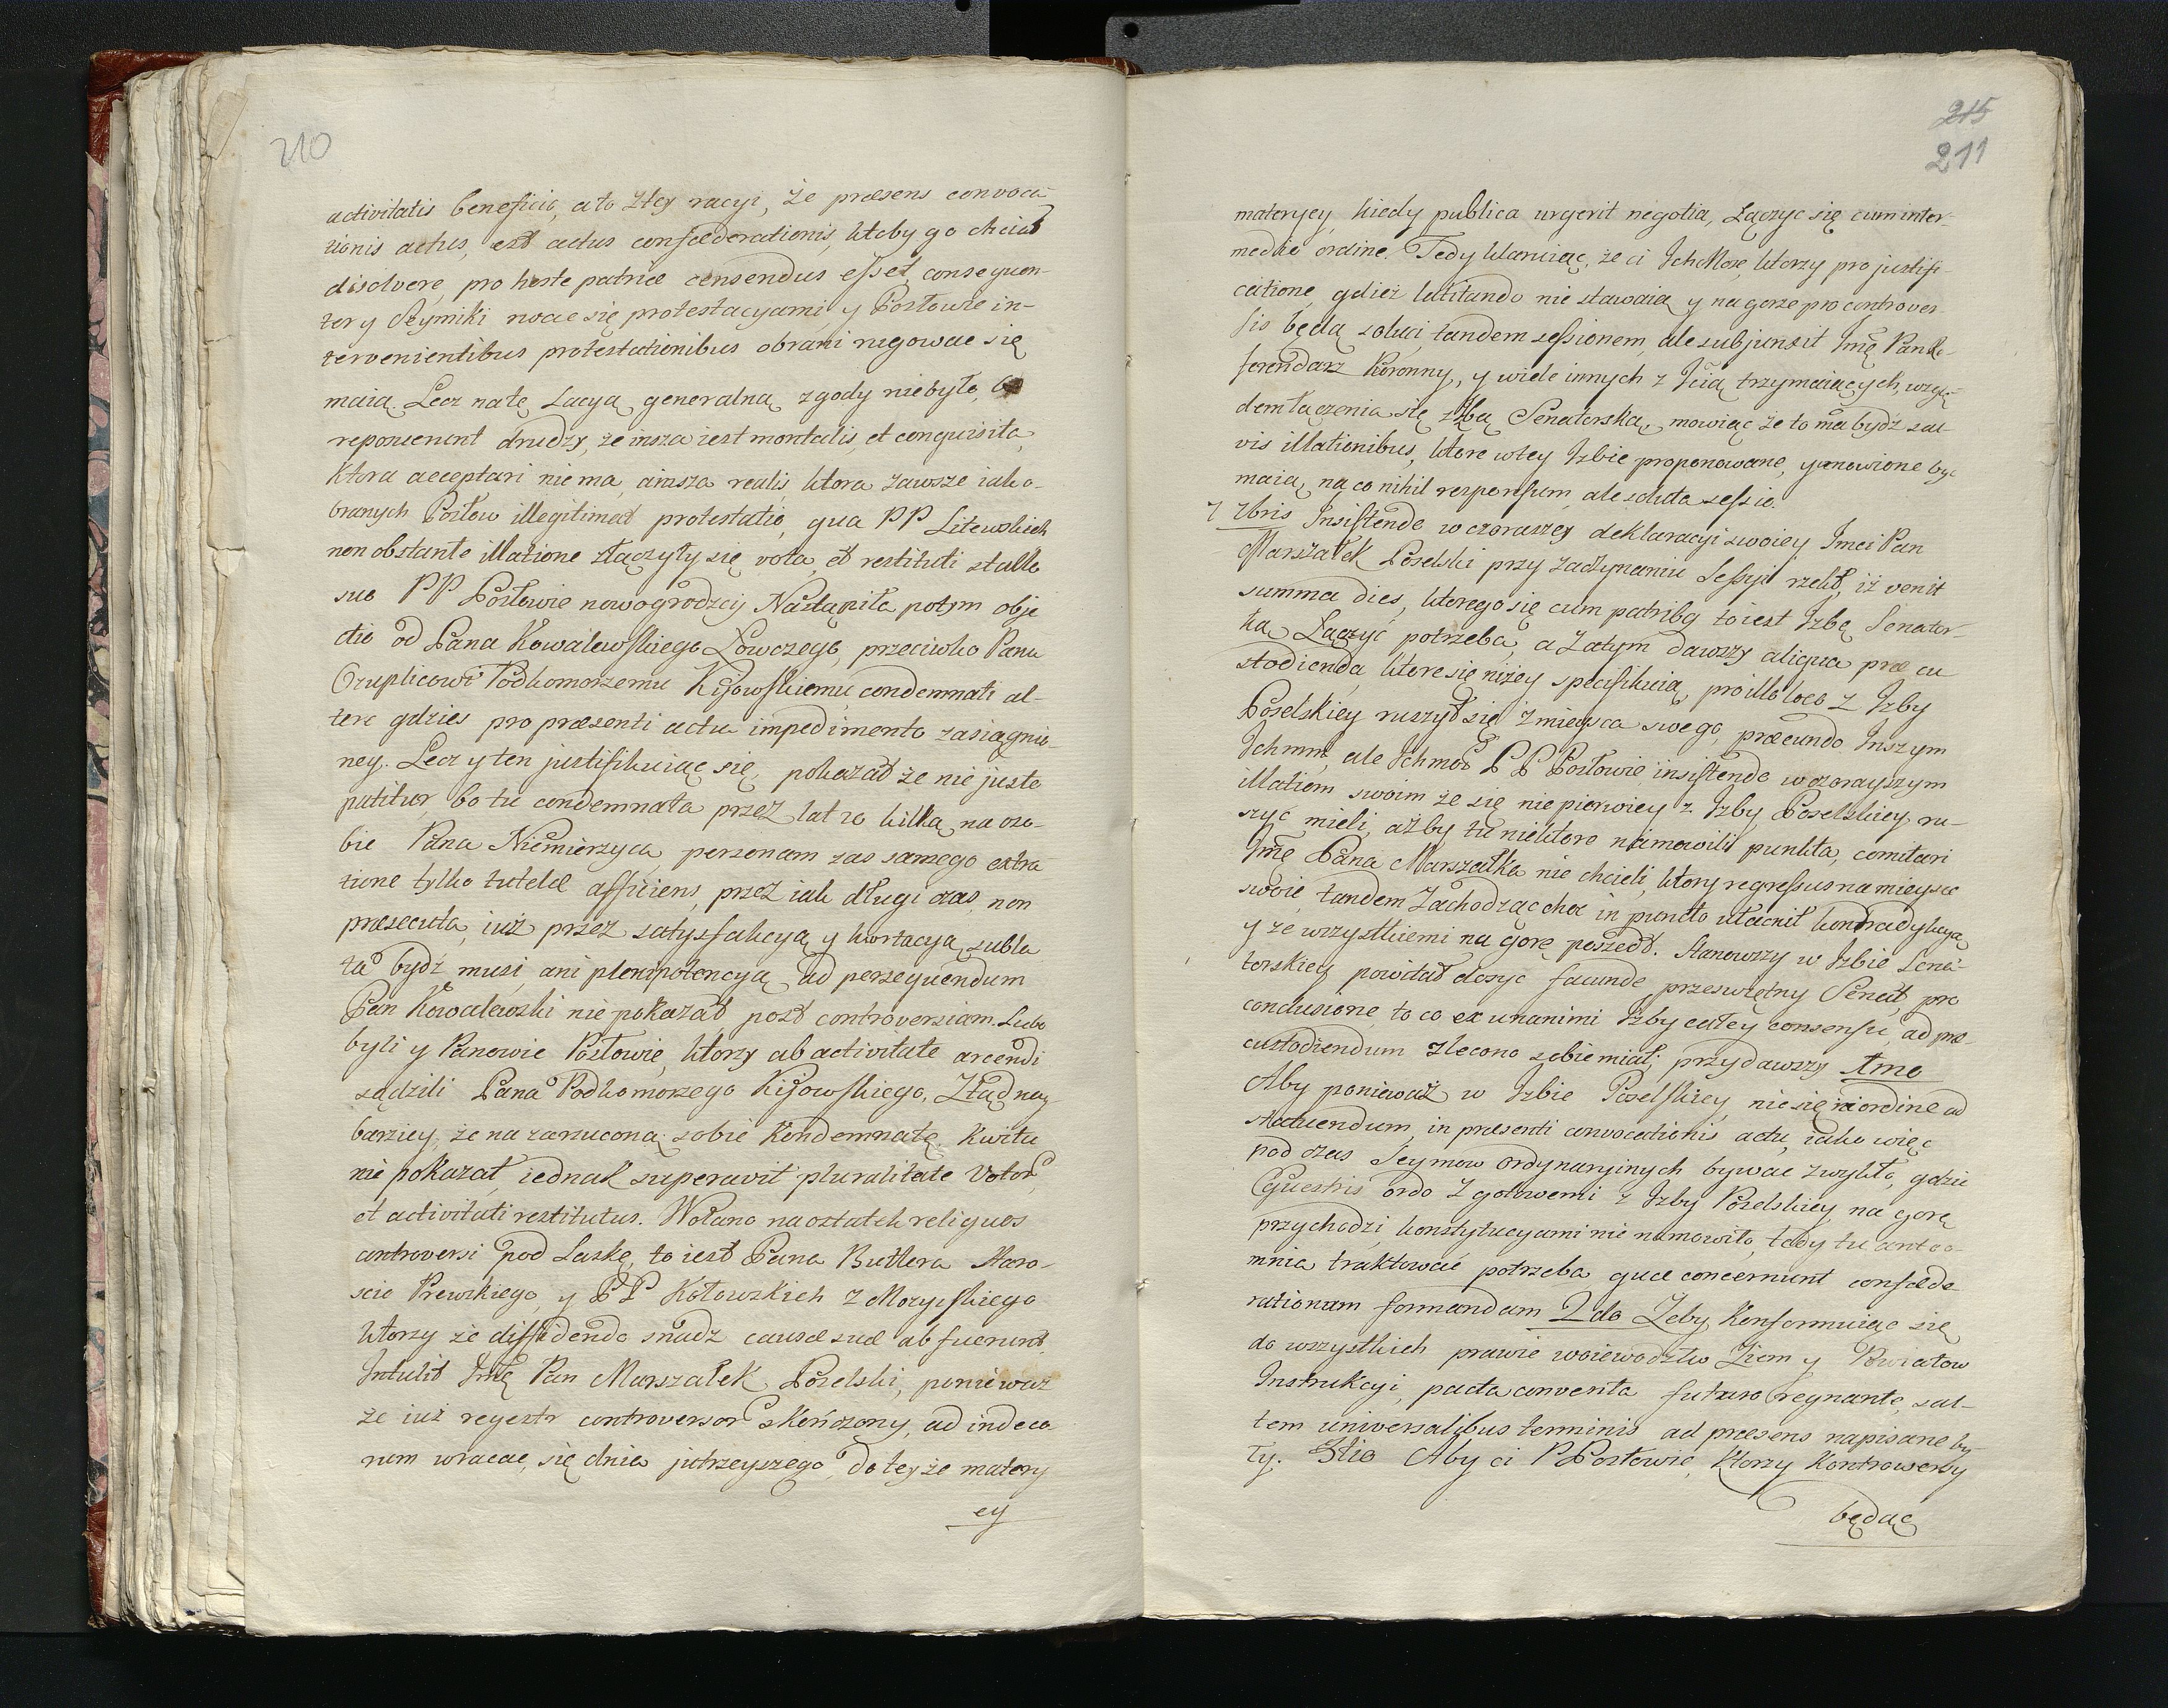 210
activitatis beneficio, a to z tey racyi, że præsens convoca-
tionis actus, est actus confœderationis, ktoby go chciał
disolvere, pro hoste patriæ censendus esset, consequen-
ter y Seymiki rwac się protestacyami, y Posłowie in-
tervenientibus protestationibus obrani rugowac się
maią. Lecz na tę Lacyą generalną zgody niebyło,
reponserunt drudzy, że insza iest mentalis, et conquisita,
Ktora acceptari nie ma, a insza realis, ktora zawsze iako o-
branych Posłow illegitimat protestatio, qua PP Litewskich
non obstante illatione złączyły się vota, et restituti stallo
suo PP Posłowie nowogrodzcy. Nastąpiła potym obje
ctio od Pana Kowalewskiego Łowczego, przeciwko Panu
Podkomorzemu Kijowskiemu, condemnati al-
tere gdzies pro præsenti actu impedimento zasiągnio-
ney. Lecz y ten justifikuiąc się, pokazał że nie juste
patitur, bo tu condemnata przez lat 20 kilka na oso-
bie Pana Niemierzyca, personam zas samego extra
tione tylko tutelæ afficiens, przez iak długi czas, non
prosecuta, iuż przez satysfakcyą y kwitacyą subla
ta bydz musi, ani plenipotencyą ad persequendum
Pan Kowalewski nie pokazał post controversiam. Lubo
byli y Panowie Posłowie, ktorzy ab activitate arcendi
sądzili Pana Podkomorzego Kijowskiego, Ztąd nay
barziey, że na zarzuconą sobie Kondemnatę Kwitu
nie pokazał, iednak superavit pluralitate Votor
et activitati restitutus. Wołano na ostatek reliquos
controversi pod Laskę, to iest Pana Buttlera Staro-
scie Prewskiego, y PP Kotowskich z Mozyrskiego
ktorzy że diffidendo snadz causæ suæ abfuerunt,
Intulit Jmę Pan Marszałek Poselski, poniewaz
że iuż regestr controversor skończony, ad indeco-
rum wracac się dnia jutrzeyszego, do teyże matery
ey
215
211
materyey, kiedy publica urgerit negotia, Łączyc się cum inter-
medio ordine. Tedy klaruiąc, że ci Jchmose ktorzy pro justifi-
catione, gdzież latitando nie stawaią y na gorze pro controver
sis będą soluci, tandem sessionem, ale subjunxit Jmę Pan Re-
ferendarz Koronny, y wiele innych z Jcią trzymaiących, wzglę-
dem łączenia się z Jzbą Senatorską, mowiąc że to ma bydz sal-
vis illationibus, ktore w tey Jzbie proponowane, y umowione byc
maią, na co nihil responsum, ale soluta sessio.
7 Xbris Insistendo wczoraszey deklaracyi swoiey Jmci Pan
Marszałek Poselski przy zaczynaniu Sessyi rzekł, iż venit
summa dies, ktorego się cum patribq to iest Jzbą Senator-
ką Łączyć potrzeba, a zatym dawszy aliqua præ cu
stodienda, ktore się niżey specifikuią, pro illo loco z Jzby
Poselskiey ruszył się z mieysca swego, præeundo Inszym
Jchmm, ale Jchmos PP Posłowie insistendo wczorayszym
illatiom swoim że się nie pierwiey z Jzby Poselskiey ru-
szyć mieli, ażby tu niektore namowili punkta, comitari
Jmę Pana Marszałka nie chcieli, ktory regressus na mieysce
swoie, tandem Zachodzącą choc in puncto utacnił kontradykcyą
y ze wszystkiemi na gorę poszedł. Stanowszy w Jzbie Sena-
torskiey powitał dosyc facunde, przeswiętny Senat, pro
conclusione, to co ex unanimi Jzby całey consensu, ad præ-
custodiendum zlecono sobie miał; przydawszy 1mo
Aby poniewaz w Jzbie Poselskiey, nie się in ordine ad
statuendum, in præsenti convocationis actu, iako więc
pod czas Seymow ordynaryinych bywac zwykło, gdzie
Equestris ordo z gotowemi z Jzby Poselskiey na gorę
przychodzi, konstytucyami nie namowiło, tedy tu
mnia traktować potrzeba, quæ concernunt confæde
rationum formandam 2do Żeby Konformuiąc się
do wszystkich prawie woiewodztw Ziem y Powiatow
Instrukcyi, pacta conventa futuro regnante, sal-
tem universalibus terminis ad præsens napisane by-
ły. 3tio Aby ci PPosłowie, ktorzy Kontrowersy
będąc